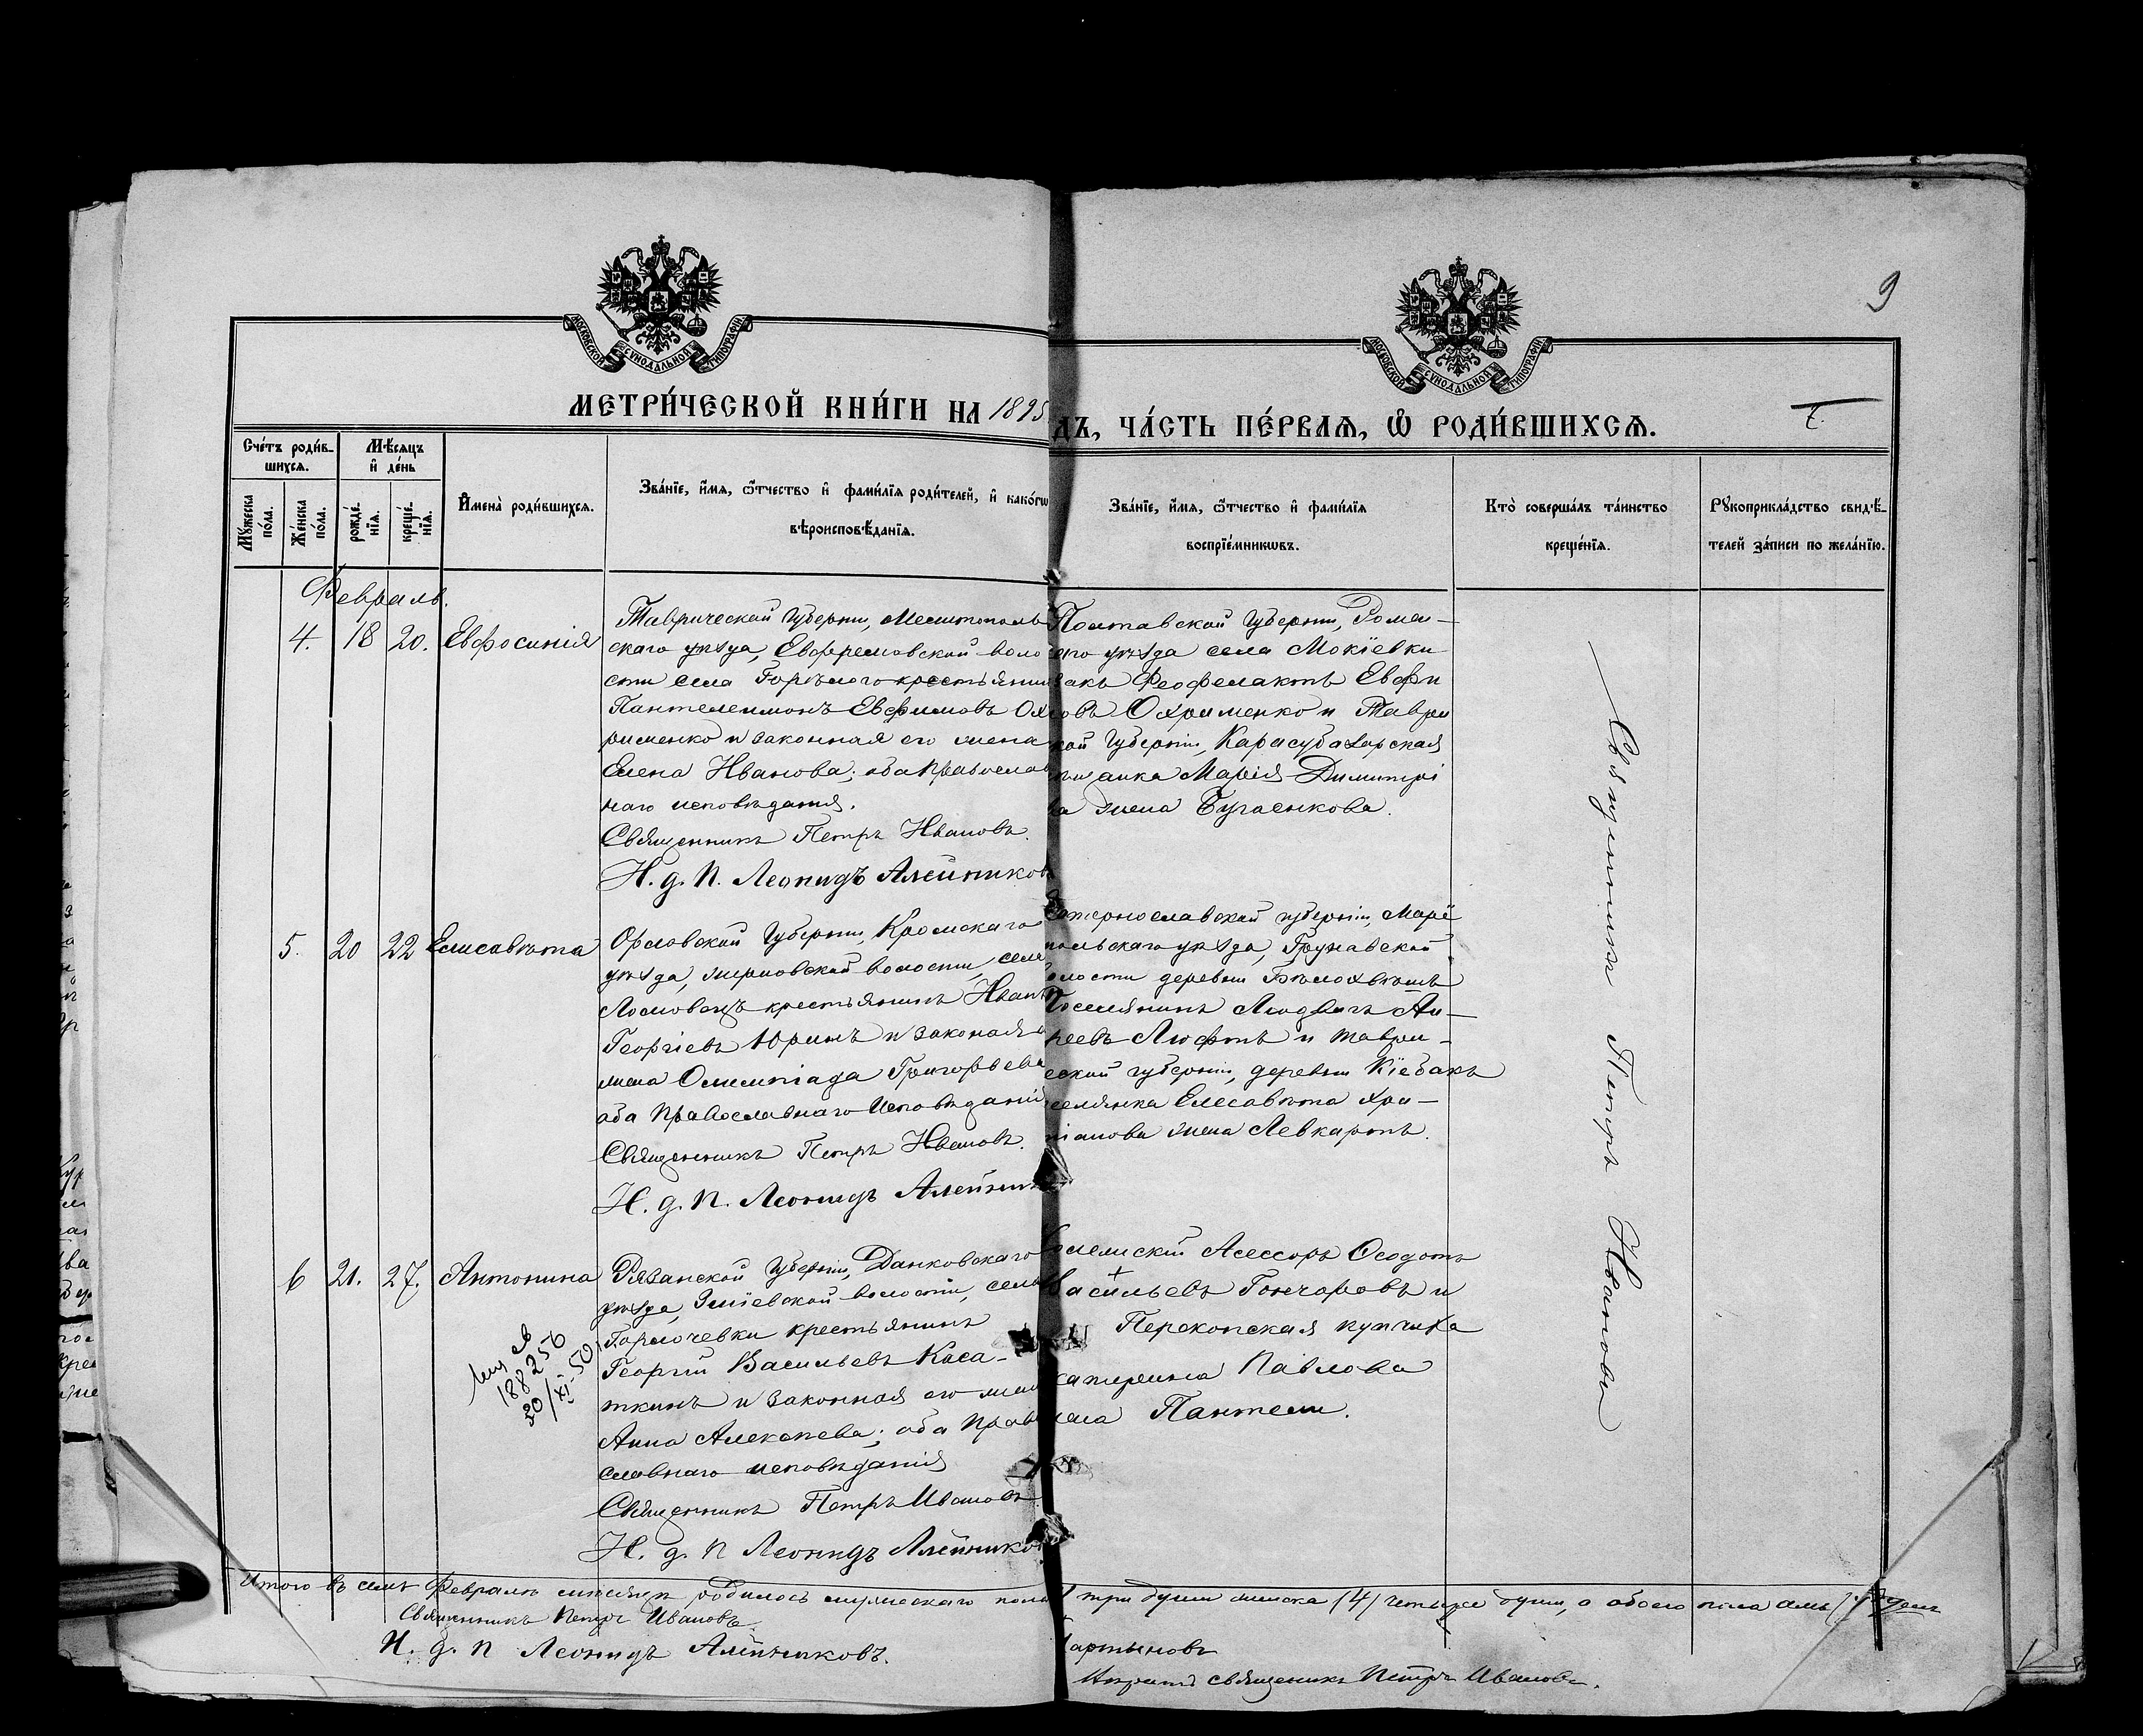 9
МОСКОВСКОЙ СУНОДАЛЬНОЙ ТИПОГРАФІИ
МОСКОВСКОЙ СУНОДАЛЬНОЙ ТИПОГРАФІИ
МЕТРИ́ЧЕСКОЙ КНИ́ГИ НА 1895
ДЪ, ЧА́СТЬ ПЕ́РВАѦ, Ѡ҆ РОДИ́ВШИХСѦ.
Сче́тъ роди́в-
шихсѧ.
Мѣ́сѧцъ
и҆ де́нь
Мꙋ́жеска
по́ла.
Же́нска
по́ла.
рожде́-
нїѧ.
креще́-
нїѧ.
И҆мена̀ роди́вшихсѧ.
Зва́нїе, и҆́мѧ, ѻ҆́тчество и҆ фами́лїѧ роди́телей, и҆ како́гѡ
вѣроисповѣ́данїѧ.
Зва́нїе, и҆́мѧ, ѻ҆́тчество и҆ фами́лїѧ
воспрїе́мникѡвъ.
Кто̀ соверша́лъ та́инство
креще́нїѧ.
Рꙋкоприкла́дство свидѣ́-
телей за́писи по жела́нїю.
Февраль.
4. 18 20. Евфосинія
Таврической Губерніи, Мелитополь
скаго уѣзда, Ефремовской воло
сти села Горѣлого крестьянин
Пантелеимонъ Евфимовъ Ох
рименко и законная его жена
Елена Иванова; оба Православ
наго исповѣданія.
Священникъ Петръ Ивановъ.
И. д. п. Леонидъ Алейников
Полтавской Губерніи, Ромен-
ого уѣзда села Мокіевки
закъ Феофелактъ Евфи
овъ Охрименко и Таври
кой Губерніи, Карасубазарская
щанка Марія Димитрі
ва жена Бугаенкова.
5. 20 22 Елисавѣта
Орловской Губерніи, Кромскаго
уѣзда, волости, села
Ломовецъ крестьянинъ Иванъ
Георгіевъ Юринъ и законая
жена Олимпіада Григорьева
оба Православнаго Исповѣданій
Священникъ Петръ Ивановъ.
И. д. п. Леонидъ Алейник
катеринославской губерніи, Марі
польскаго уѣзда, Грунавской
олости деревни
Поселянинъ Людвигъ Ан-
реевъ Люфтъ и Таври-
еской губерніи, деревни Кіебакъ
селянка Елесавѣта Хри-
тіанова жена Левкартъ.
6 21. 27. Антонина
Рязанской Губерніи, Данковскаго
уѣзда, Змїевской волости, села
крестьянинъ
Георгій Васильевъ Каса-
ткинъ и законная его жен
Анна Алексѣева; оба Прав
славнаго исповѣданія
Священникъ Петръ Ивановъ
И. д. п Леонидъ Алейников
188256
20/XI-50
Асессоръ Ѳеодотъ
Васильевъ Гончаровъ и
Перекопская купчиха
катерина Павлова
жена Пантели.
Священникъ Петръ Ивановъ
Итого въ семъ Февралѣ мѣсяцѣ родилось мужескаго пола три души женска (4) четыре души, а обоего пола
Священникъ Петръ Ивановъ.
И. д. п Леонидъ Алейниковъ.
артыновъ
священикъ Петръ Ивановъ.